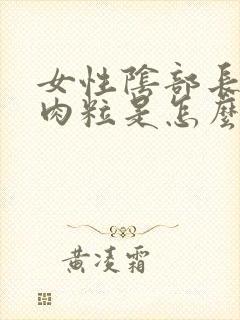 女性陰部長
肉粒是怎麼
黃凌霜